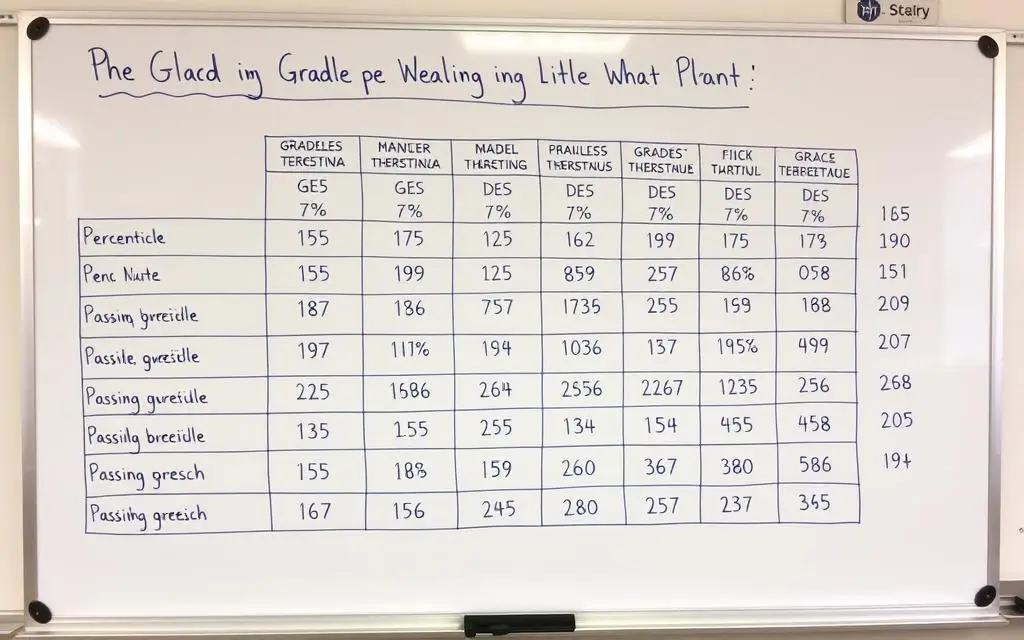 Stairy
Phe Glacd im Gradle pe Wealing ing Little What Plant:
GRADELES TERESTINA MANCER THERSTINIA MADEL THERETING PRAULESS THERSTNUS GRADES THERSTNUE FIICK TURTIUL GRACE TEBREETAUE
GES GES DES DES DES DES DES
7% 7% 7% 7% 7% 7% 7% 165
Percenticle 155 175 125 162 199 175 173 190
Penc Nurte 155 199 125 859 257 86% 058 151
Passim greeidle 187 186 757 1735 255 159 188 209
Passile, gureidle 197 117% 194 1036 137 195% 499 207
Passing gureidle 225 1686 264 2556 2267 1235 256 268
Passilg breeidle 135 155 255 134 154 455 458 205
Passing gresch 155 188 159 260 367 380 586 194
Passihg greeich 167 156 245 280 257 237 365